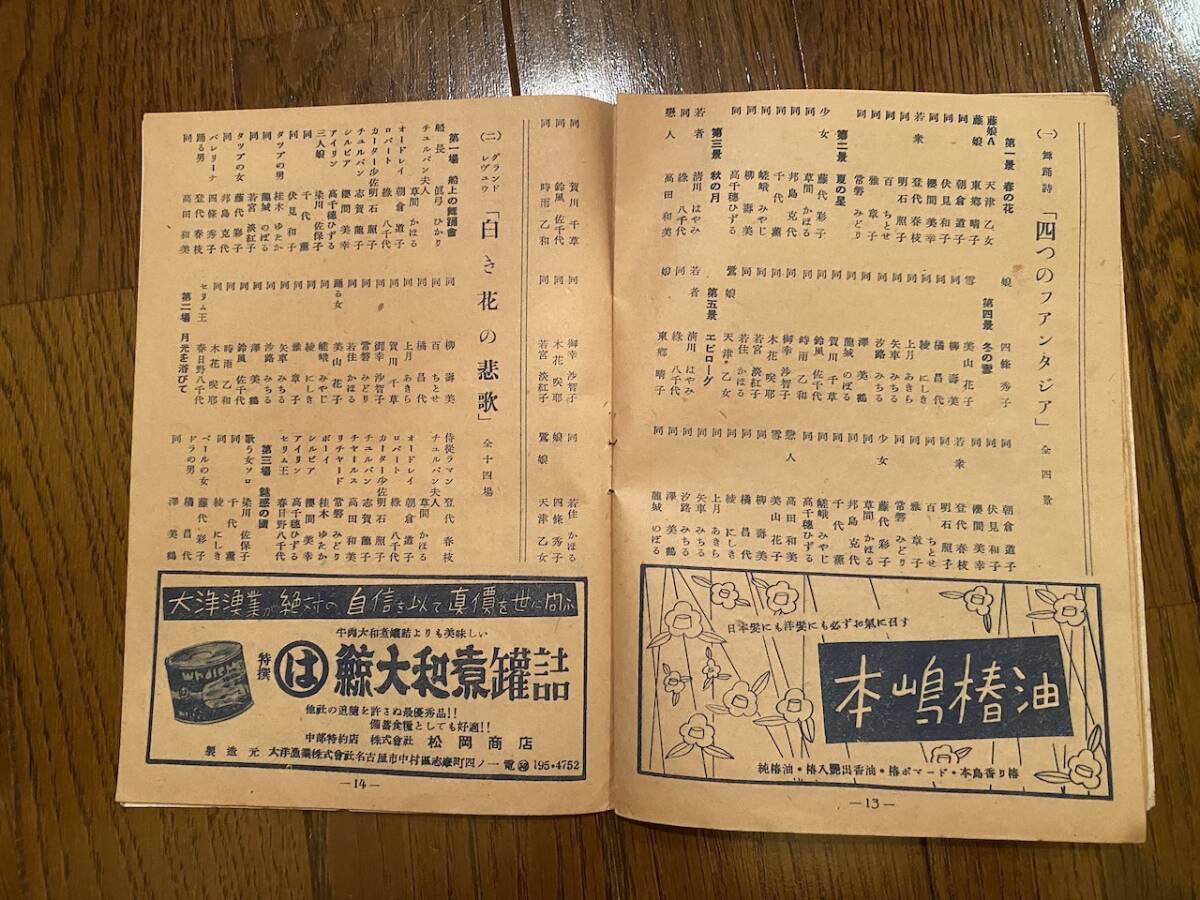 (一) 舞踊詩 「四つのフアンタジア」 全四景
第一景 春の花
藤娘A 天津乙女
藤娘 東郷晴子
同 朝倉道子
同 伏見和子
若衆 櫻間美幸
同 登代春枝
同 明石照子
同 百ちとせ
同 雅章子
同 常磐みどり
第二景 夏の星
少女 藤代彩子
同 草間かほる
同 邦島克代
同 千代薫
同 嵯峨みやじ
同 柳壽美
同 高千穂ひずる
第三景 秋の月
若者 清川はやみ
同 綠八千代
戀人 高田和美
娘 四條秀子
第四景 冬の雪
雪 美山花子
同 柳壽美
同 橘昌代
同 綾にしき
同 上月あきら
同 矢車みちる
同 汐路みちる
同 澤美鶴
同 龍城のぼる
同 賀川千草
同 鈴風佐千代
同 時雨乙和
同 御幸沙智子
同 木花咲耶
同 若宮淡紅子
同 若住かほる
鷺娘 天津乙女
第五景 エピローグ
若者 清川はやみ
同 綠八千代
娘 東郷晴子
同 朝倉道子
同 伏見和子
同 櫻間美幸
若衆 登代春枝
同 明石照子
同 百ちとせ
同 雅章子
同 常磐みどり
少女 藤代彩子
同 草間かほる
同 邦島克代
同 千代薫
同 嵯峨みやじ
同 高千穂ひずる
戀人 高田和美
雪 美山花子
同 柳壽美
同 橘昌代
同 綾にしき
同 上月あきら
同 矢車みちる
同 汐路みちる
同 澤美鶴
同 龍城のぼる
日本髪にも洋髪にも必ずお氣に召す
本嶋椿油
純椿油・椿入艶出香油・椿ポマード・本島香り椿
—13—
同 賀川千草
同 鈴風佐千代
同 時雨乙和
同 御幸沙智子
同 木花咲耶
同 若宮淡紅子
同 若住かほる
娘 四條秀子
鷺娘 天津乙女
(二) グランドレヴユウ 「白き花の悲歌」 全十四場
第一場 船上の舞踊會
船長 眞弓ひかり
チユルバン夫人 草間かほる
オードレイ 朝倉道子
ロバート 綠八千代
カーター少佐 明石照子
チユルバン 志賀龍子
シルビア 櫻間美幸
アイリン 高千穂ひずる
三人娘 染川佐保子
同 千代薫
同 伏見和子
タツプの男 桂木ゆたか
同 龍城のぼる
同 若宮淡紅子
タツプの女 藤代彩子
同 邦島克代
バレリーナ 四條秀子
踊る男 登代春枝
同 高田和美
同 柳壽美
同 百ちとせ
同 橘昌代
同 上月あきら
同 賀川千草
同 御幸沙智子
同 常磐みどり
同 若住かほる
踊る女 美山花子
同 嵯峨みやじ
同 綾にしき
同 雅章子
同 矢車みちる
同 汐路みちる
同 澤美鶴
同 鈴風佐千代
同 時雨乙和
同 木花咲耶
セリム王 春日野八千代
第二場 月光を浴びて
侍從ラマン 登代春枝
チユルバン夫人 草間かほる
オードレイ 朝倉道子
ロバート 綠八千代
カーター少佐 明石照子
チユルバン 志賀龍子
チヤールス 高田和美
リチヤード 常磐みどり
ボーイ 桂木ゆたか
シルビア 櫻間美幸
アイリン 高千穂ひずる
セリム王 春日野八千代
第三場 魅惑の國
歌う女ソロ 染川佐保子
同 千代薫
同 綾にしき
ベールの女 藤代彩子
ドラの男 橘昌代
同 澤美鶴
大洋漁業が絶対の自信を以て真價を世に問ふ
牛肉大和煮罐詰よりも美味しい
特撰 は 鯨大和煮罐詰
他社の追隨を許さぬ最優秀品!!
備蓄食糧としても好適!!
中部特約店 株式會社 松岡商店
製造元 大洋漁業株式會社名古屋市中村區志摩町四ノ一電 195・4752
—14—